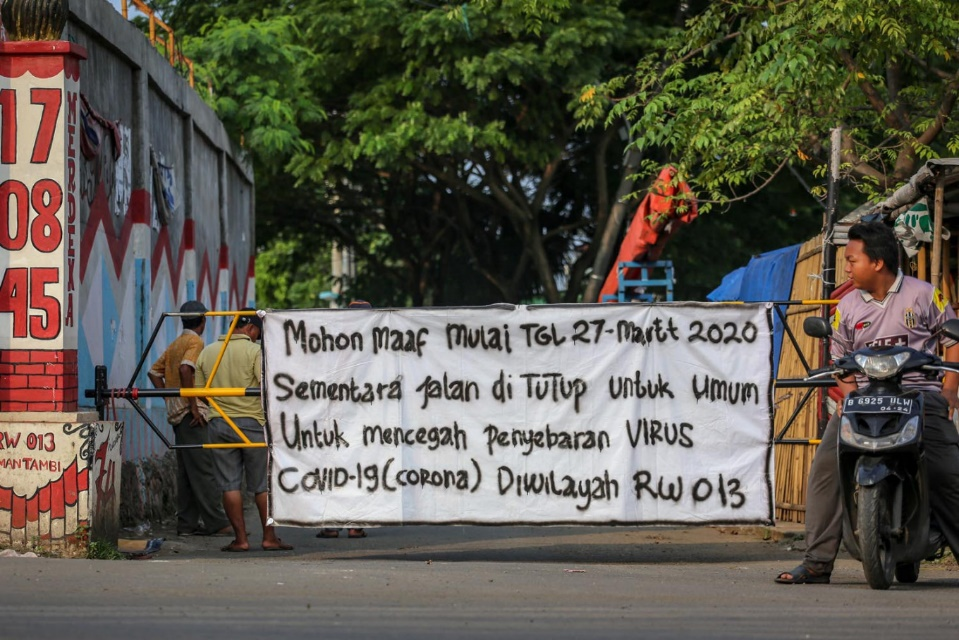 17
08
45
MERDEKA
RW 013
MAN TAMBI
Mohon Maaf Mulai TGL 27-Maret 2020
Sementara jalan di TUTUP untuk Umum
Untuk mencegah penyebaran VIRUS
COVID-19 (corona) Diwilayah RW 013
B 6925 ULW
04·24